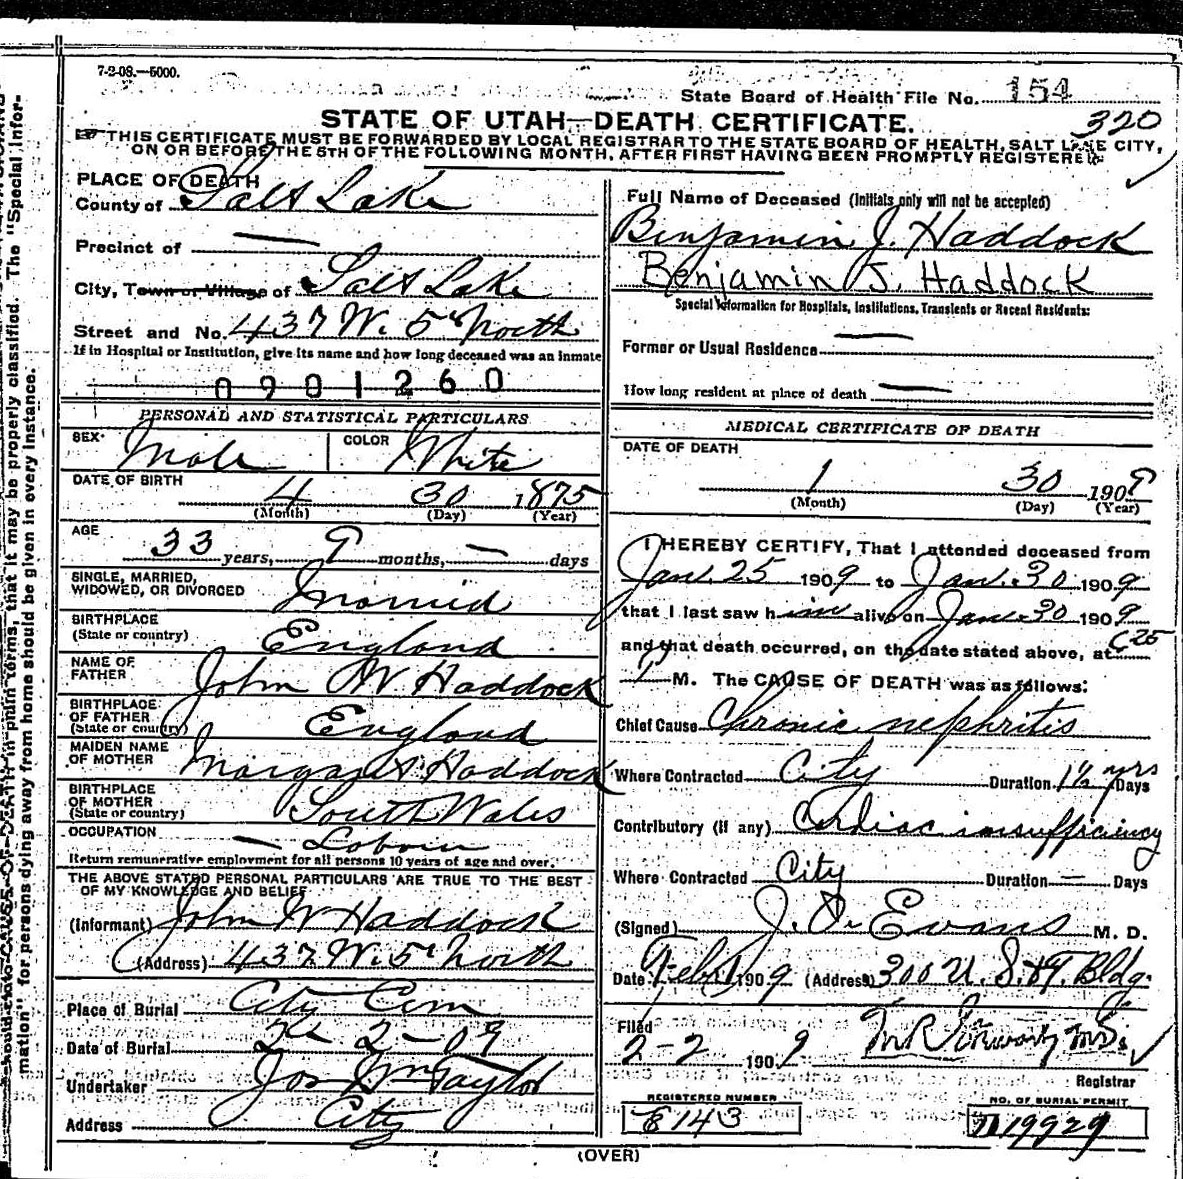 7-2-08.—5000.
State Board of Health File No. 154
STATE OF UTAH—DEATH CERTIFICATE.
320
THIS CERTIFICATE MUST BE FORWARDED BY LOCAL REGISTRAR TO THE STATE BOARD OF HEALTH, SALT LAKE CITY,
ON OR BEFORE THE 5TH OF THE FOLLOWING MONTH, AFTER FIRST HAVING BEEN PROMPTLY REGISTERED.
PLACE OF DEATH
County of Salt Lake
Precinct of —
City, Town or Village of Salt Lake
Street and No. 437 W. 5th North
If in Hospital or Institution, give its name and how long deceased was an inmate
0901260
PERSONAL AND STATISTICAL PARTICULARS
SEX Male COLOR White
DATE OF BIRTH
4 30 1875
(Month) (Day) (Year)
AGE
33 years, 9 months, — days
SINGLE, MARRIED,
WIDOWED, OR DIVORCED Married
BIRTHPLACE
(State or country) England
NAME OF
FATHER John W Haddock
BIRTHPLACE
OF FATHER
(State or country) England
MAIDEN NAME
OF MOTHER Margaret Haddock
BIRTHPLACE
OF MOTHER
(State or country) South Wales
OCCUPATION
— Labour
Return remunerative employment for all persons 10 years of age and over.
THE ABOVE STATED PERSONAL PARTICULARS ARE TRUE TO THE BEST
OF MY KNOWLEDGE AND BELIEF
(Informant) John W Haddock
(Address) 437 W. 5th North
Place of Burial City Cem
Date of Burial 2-09
Undertaker Jos Wm Taylor
Address City
Full Name of Deceased (Initials only will not be accepted)
Benjamin J. Haddock
Benjamin J. Haddock
Special Information for Hospitals, Institutions, Transients or Recent Residents:
Former or Usual Residence —
How long resident at place of death —
MEDICAL CERTIFICATE OF DEATH
DATE OF DEATH
1 30 1909
(Month) (Day) (Year)
I HEREBY CERTIFY, That I attended deceased from
Jan. 25 1909 to Jan. 30 1909
that I last saw him alive on Jan. 30 1909
and that death occurred, on the date stated above, at 25
M. The CAUSE OF DEATH was as follows:
Chief Cause Chronic nephritis
Where Contracted City Duration 1½ yrs Days
Contributory (if any) Cardiac insufficiency
Where Contracted City Duration — Days
(Signed) J. O. Evans M. D.
Date Feb 1 1909 (Address) 300 U. S. & T. Bldg.
Filed
2-2 1909
Registrar
REGISTERED NUMBER
E 143
NO. OF BURIAL PERMIT
19929
(OVER)
should state CAUSE OF DEATH in plain terms, that it may be properly classified. The "Special Infor-
mation" for persons dying away from home should be given in every instance.